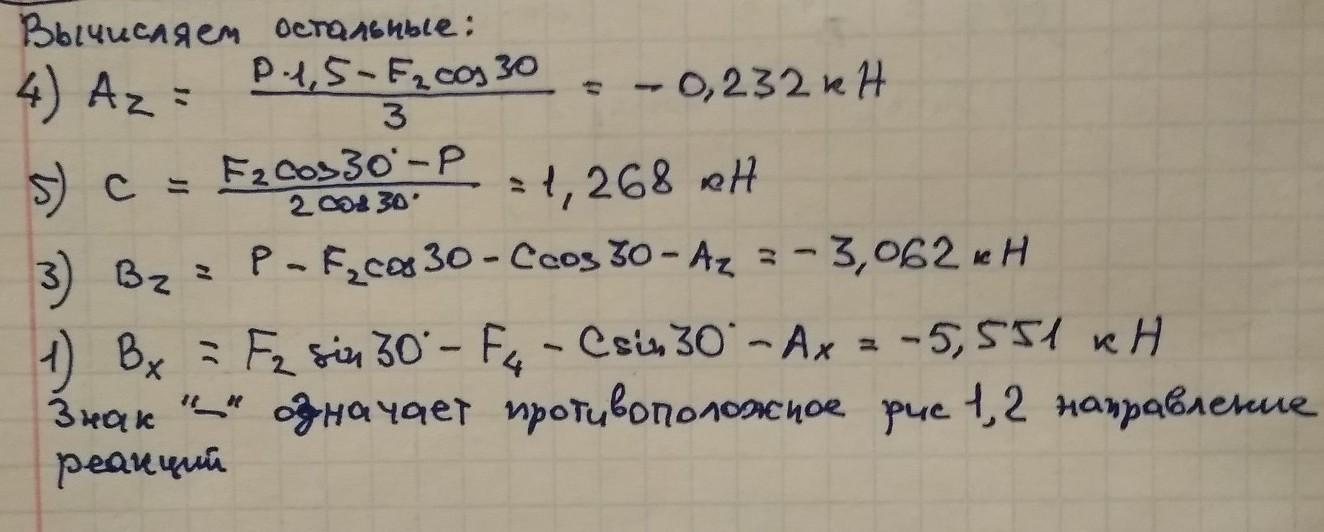 Вычисляем остальные:
4) Az = P·1,5 - F2cos30 / 3 = - 0,232 кН
5) C = F2cos30° - P / 2cos30° = 1,268 кН
3) Bz = P - F2cos30 - Ccos30 - Az = - 3,062 кН
1) Bx = F2 sin30° - F4 - Csin30° - Ax = -5,551 кН
Знак "-" означает противоположное рис 1,2 направление
реакций